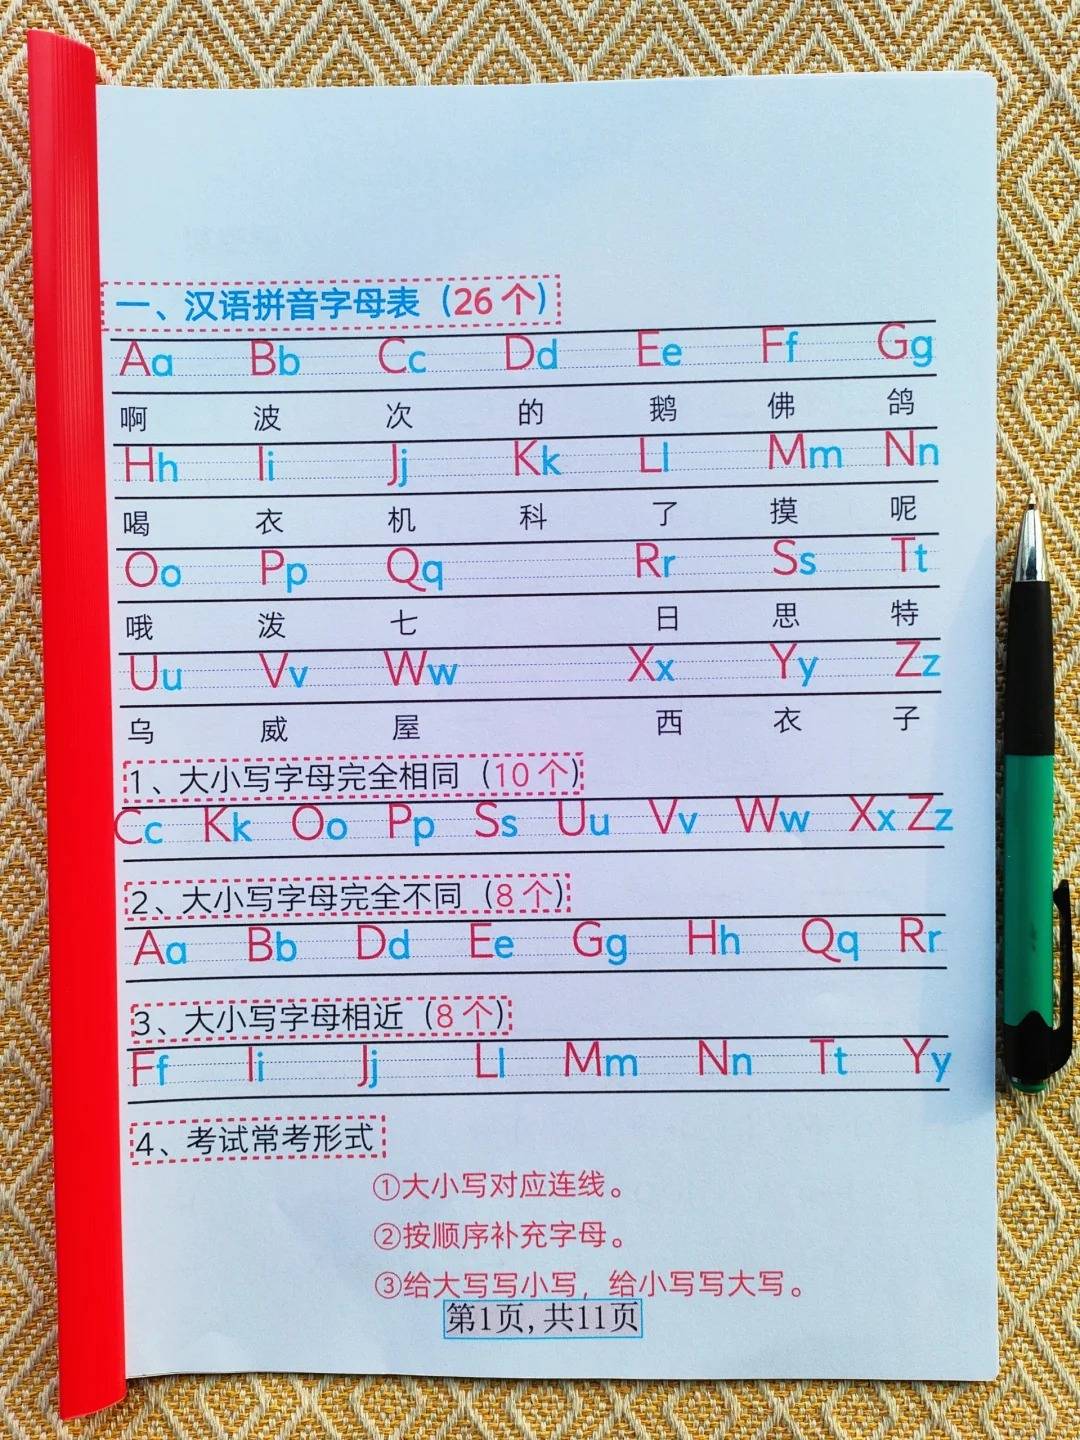 一、汉语拼音字母表（26个）
Aa Bb Cc Dd Ee Ff Gg
啊 波 次 的 鹅 佛 鸽
Hh Ii Jj Kk Ll Mm Nn
喝 衣 机 科 了 摸 呢
Oo Pp Qq Rr Ss Tt
哦 泼 七 日 思 特
Uu Vv Ww Xx Yy Zz
乌 威 屋 西 衣 子
1、大小写字母完全相同（10个）
Cc Kk Oo Pp Ss Uu Vv Ww Xx Zz
2、大小写字母完全不同（8个）
Aa Bb Dd Ee Gg Hh Qq Rr
3、大小写字母相近（8个）
Ff Ii Jj Ll Mm Nn Tt Yy
4、考试常考形式
①大小写对应连线。
②按顺序补充字母。
③给大写写小写，给小写写大写。
第1页,共11页